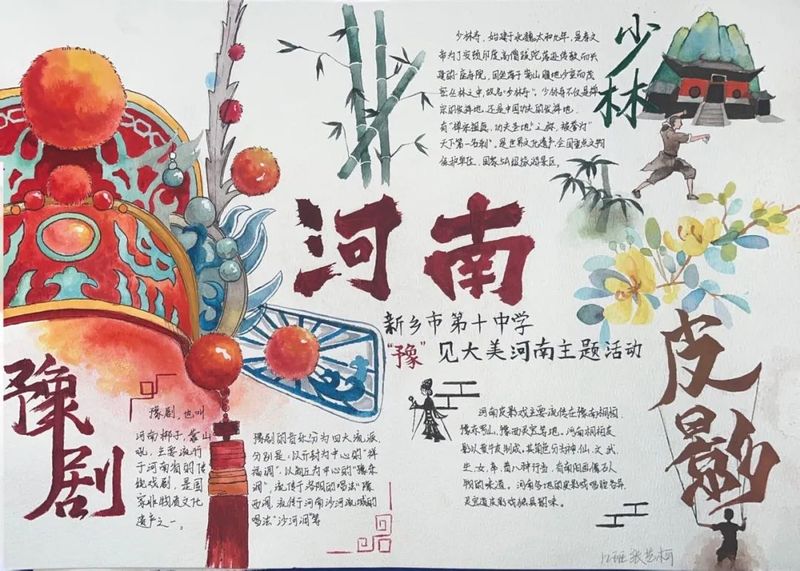 少林寺，始建于北魏太和九年，是孝文
帝为了安顿印度高僧跋陀落迹传教而兴
建的一座寺院，因坐落于嵩山腹地少室山茂
密丛林之中，故名"少林寺"。少林寺不仅是禅
宗的发源地，还是中国功夫的发祥地，
有"禅宗祖庭，功夫圣地"之称，被誉为"
天下第一名刹"，是世界文化遗产、全国重点文物
保护单位、国家5A级旅游景区。
少林
河南
新乡市第十中学
"豫"见大美河南主题活动
豫剧
豫剧，也叫
河南梆子、靠山
吼，主要流行
于河南省的传
统戏剧，是国
家非物质文化
遗产之一。
豫剧的音乐分为四大流派
分别是：以开封为中心的"祥
福调"，以商丘为中心的"豫东
调"，流传于洛阳的唱法"豫
西调"，流行河南沙河流域的
唱法"沙河调"等
皮影
河南皮影戏主要流传在豫南桐柏、
豫东罗山、豫西灵宝等地。河南桐柏皮
影以黄牛皮制成，其角色分神仙、文、武、
生、女、帝、番八种行当，有南阳画像石人
物的味道。河南各地的皮影戏唱腔各异
灵宝道皮影戏极具韵味。